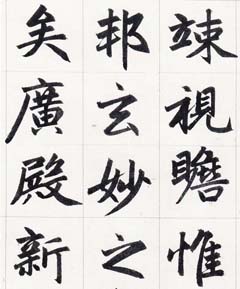 竦視瞻惟
邦玄妙之
矣廣殿新